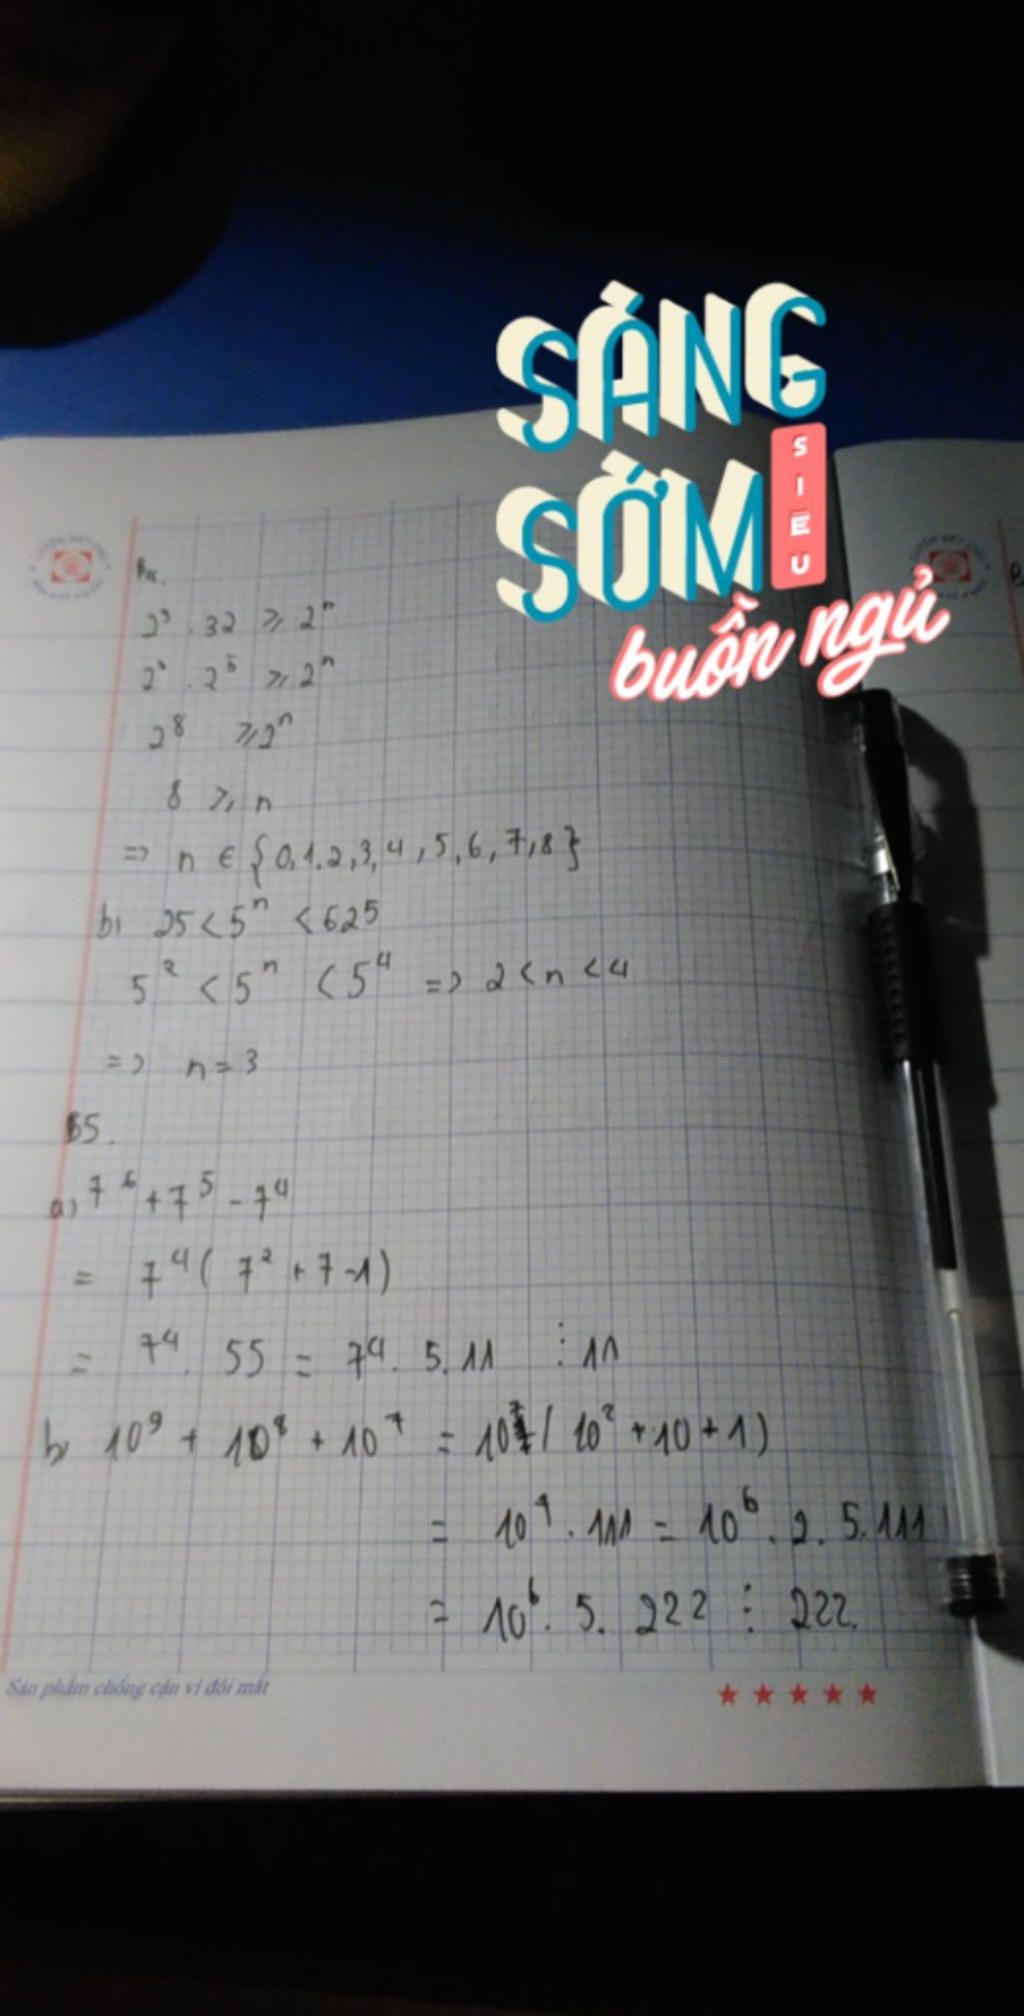 SÁNG
SỚM
SIÊU
buồn ngủ
2³ . 32 ⩾ 2ⁿ
2³ . 2⁵ ⩾ 2ⁿ
2⁸ ⩾ 2ⁿ
8 ⩾ n
=> n ∈ {0,1,2,3,4,5,6,7,8}
b) 25 < 5ⁿ < 625
5² < 5ⁿ < 5⁴ => 2 < n < 4
=> n = 3
B5.
a) 7⁶ + 7⁵ - 7⁴
= 7⁴( 7² + 7 - 1)
= 7⁴ . 55 = 7⁴ . 5.11 ⋮ 11
b) 10⁹ + 10⁸ + 10⁷ = 10⁷( 10² + 10 + 1)
= 10⁷ . 111 = 10⁶ . 2 . 5.111
= 10⁶ . 5. 222 ⋮ 222.
Sản phẩm chống cận vì đôi mắt